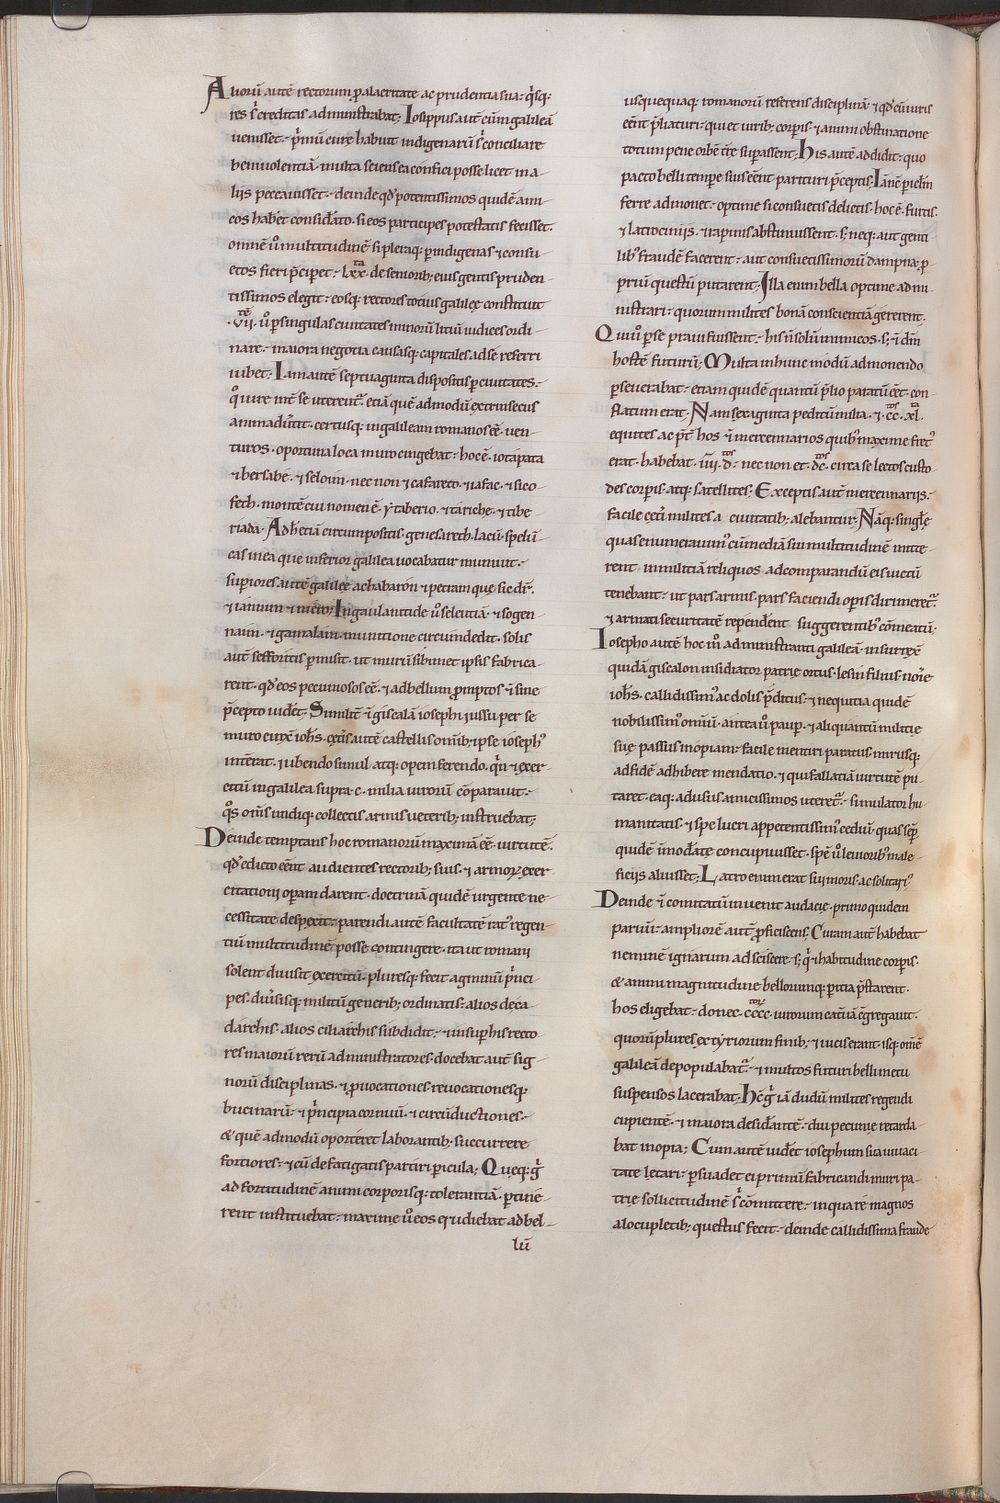 Aliorū autē rectorum ꝓ alacritate ac prudentia sua· q̇sq;
res s̓ creditas administrabat; Iosippus autē cūm galileā
uenisset· p̓mū curę habuit indigenarū s̓ conciliare
beniuolentiā· multa sciens ea confici posse licet in a
liis peccauisset· deinde qd̓ potentissimos quidē ami
cos habet̓ considato· si eos participes potestatis fecisset·
omnē ū̓ multitudinē si pleraq; ꝑ indigenas ⁊ consu
etos fieri p̄ciperet· lxx· de seniorib; eius gentis pruden
tissimos elegit· eosq; rectores totius galileę constituit
·vii· ū̓ ꝑ singulas ciuitates minorū litiū iudices ordi
nare· maiora negotia causasq; capitales ad sē referri
iubet· Iam autē septuaginta dispositis ꝑ ciuitates·
q̊ iure int̄ se uterent᷑· etiā quē admodū extrinsecus
animaduertit· certusq; in galileam romanos eē uen
turos· oportuna loca muro cingebat· hoc ē· iotapata
⁊ bersabē· ⁊ seloim· nec non ⁊ cafareco· ⁊ iafac· ⁊ sico
fech· montē cui nomen ē· ẏtaberio· ⁊ tariche· ⁊ tibe
riada· Ad h̓ etiā circumpositis genesareth· lacū· spelū
cas in ea quę inferior galilea uocabatur muniuit·
superiores autē galileę achabarōn ⁊ petram quę sic dr̄·
⁊ iamim ⁊ mero; In gaulantide ū̓ seleutiā· ⁊ sogen
naim· ⁊ gamalam· munitione circumdedit· solis
autē sefforitis ꝑmisit· ut murū sibimet ipsis fabrica
rent· qd̓ eos pecuniosos eē· ⁊ ad bellum ꝓmptos ⁊ sine
p̄cepto uidet· Similit̄ ⁊ giscalā ioseph iussu per se
muro cinxē ioh̄s· cęt̓is autē castellis om̄ib; ipse ioseph᷒
int̓erat· iubendo simul atq; opem ferendo· q̓n ⁊ exer
citū in galilea supra· c· milia uirorū cōparauit·
q̊s om̄s undiq; collectis armis ueterib; instruebat;
Deinde temptans hoc romanorū maximā eē uirtutē·
qd̓ edicto eēnt audientes rectorib; suis· ⁊ armoꝝ exer
citationi operam darent· doctrinā quidē urgente ne
cessitate despexit· parendi autē facultatē rat᷒ regen
tiū multitudinē posse contingere· ita ut romani
solent diuisit exercitū· pluresq; fecit agminū p̓nci
pes· diūsisq; militū generib; ordinatis· alios deca
darchis· alios ciliarchis subdidit· ⁊ insup his recto
res maiorū rerū administratores· docebat autē sig
norū disciplinas· ⁊ ꝓuocationes reuocationesq;
bucinarū· ⁊ p̓ncipia cornuū· ⁊ circūductiones·
& quē admodū oporteret laborantib; succurrere
fortiores· ⁊ cū defatigatis partiri pericula; Queq; g̓
ad fortitudinē animi corporisq; tolerantiā· ꝑtine
rent instituebat· maxime ū̓ eos erudiebat ad bel
lū
usquequaq; romanorū referens disciplinā· ⁊ qd̓ cū uiris
eēnt p̄liaturi· qui et uirib; corpis· ⁊ animi obstinatione
totum pene orbē trę supassent; His autē addidit· quo
pacto belli tempe sui eēnt parituri p̄ceptis; Iā nē p̄ uelim
ferre admonet· optime si consuetis delictis· hoc ē· furtis
⁊ latrociniis· ⁊ rapinis abstinuissent· s; neq; aut genti
lib᷒ fraudē facerent· aut consuetissimorū dampna; ꝓ
priū questū putarent; Illa enim bella optime admi
nistrari· quorum milites bonā conscientiā gererent·
Qui ū̓ ꝑ se praui fuissent· his n̄ solū inimicos· s; ⁊ dm̄
hostē futurū; Multa in hunc modū admonendo
ꝑseuerabat· etiam quidē quantū p̄lio paratū eēt· con
flatum erat· Nam sexaginta peditū milia· ⁊ cc· xl·
equites ac p̄t̄ hos ⁊ mercennarios quib᷒ maxime fret᷒
erat· habebat· iiii· d· nec non et· dc· circa se lectos custo
des corpis· atq; satellites· Exceptis autē mercennariis·
facile cęt̓i milites a ciuitatib; alebantur· Nāq; singulę
quas enumerauim᷒ cū mediā sui multitudinē mitte
rent in militiā reliquos ad comparandū eis uictū
tenebant· ut pars armis· pars faciendi operis dirimeret᷑·
⁊ armati securitatē rependent suggerentib᷒ cōmeatū;
Iosepho autē hoc m̊ administranti galileā· insurrexē
quidā giscalon insidiator patrie ortus· lesin filius· noīe
ioh̄s· callidissim᷒ ac dolis p̄ditus· ⁊ nequitia quidē
nobilissim᷒ om̄iū· antea ū̓ paup· ⁊ aliquantū militię
suę passus inopiam· facile mentiri paratus· mirusq;
ad fidē adhibere mendatio· ⁊ qui fallatiā uirtutē pu
taret· eaq; ad usus amicissimos uteret᷑· simulator hu
manitatis· ⁊ spe lucri appetentissim᷒ cediū· quas sēp̄
quidē inmodate concupiuisset· spē ū̓ leuiorib᷒ male
ficiis aluisset; Latro enim erat sui moris· ac solitari᷒
Deinde ⁊ comitatū inuenit audacię· primo quidem
paruū· ampliorē autē proficiscens; Curam autē habebat
neminē ignarum adsciscere· s; q̓ ⁊ habitudine corpis·
& animi magnitudine bellorumq; ꝑitia p̄starent·
hos eligebat· donec· cccc· uirorum caūā ē̄gregauit·
quorū plures ex tyriorum finib; ⁊ uicis erant· isq; om̄ē
galileā depopulabat᷑· ⁊ multos futuri belli metu
suspensos lacerabat· H̄c g̓ iā dudū milites regendi
cupientē· ⁊ maiora desidantē· diu pecunię retarda
bat inopia; Cum autē uidēt iosephum sua uiuaci
tate lętari· ꝑsuadet ei primū fabricandi muri pa
trię sollicitudinē s̓ cōmittere· in qua re magnos
a locupletib; questus fecit· deinde callidissima fraude